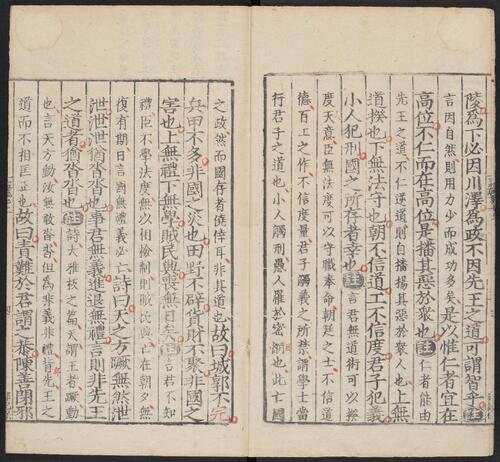 陵爲下必因川澤爲政不因先王之道可謂智乎註
言因自然則用力少而成功多矣是以惟仁者宜在
高位不仁而在高位是播其惡於衆也註仁者能由
先王之道不仁逆道則自播揚其惡於衆人也上無
道揆也下無法守也朝不信道工不信度君子犯義
小人犯刑國之所存者幸也註言君無道術可以揆
度天意臣無法度可以守職奉命朝廷之士不信道
德百工之作不信度量君子觸義之所禁謂學士當
行君子之道也小人觸刑愚人罹於密網也此亡國
之政然而國存者僥倖耳非其道也故曰城郭不完
兵甲不多非國之災也田野不辟貨財不聚非國之
害也上無禮下無學賊民興喪無日矣註言君不知
禮臣不學法度無以相檢制則賊民興亡在朝夕無
復有期日言國無禮義必亡詩曰天之方蹶無然泄
泄泄泄猶沓沓也事君無義進退無禮言則非先王
之道者猶沓沓也註詩大雅板之篇天謂王者蹶動
也言天方動汝無敢沓沓但爲非義非禮背先王之
道而不相匡正也故曰責難於君謂之恭陳善閉邪